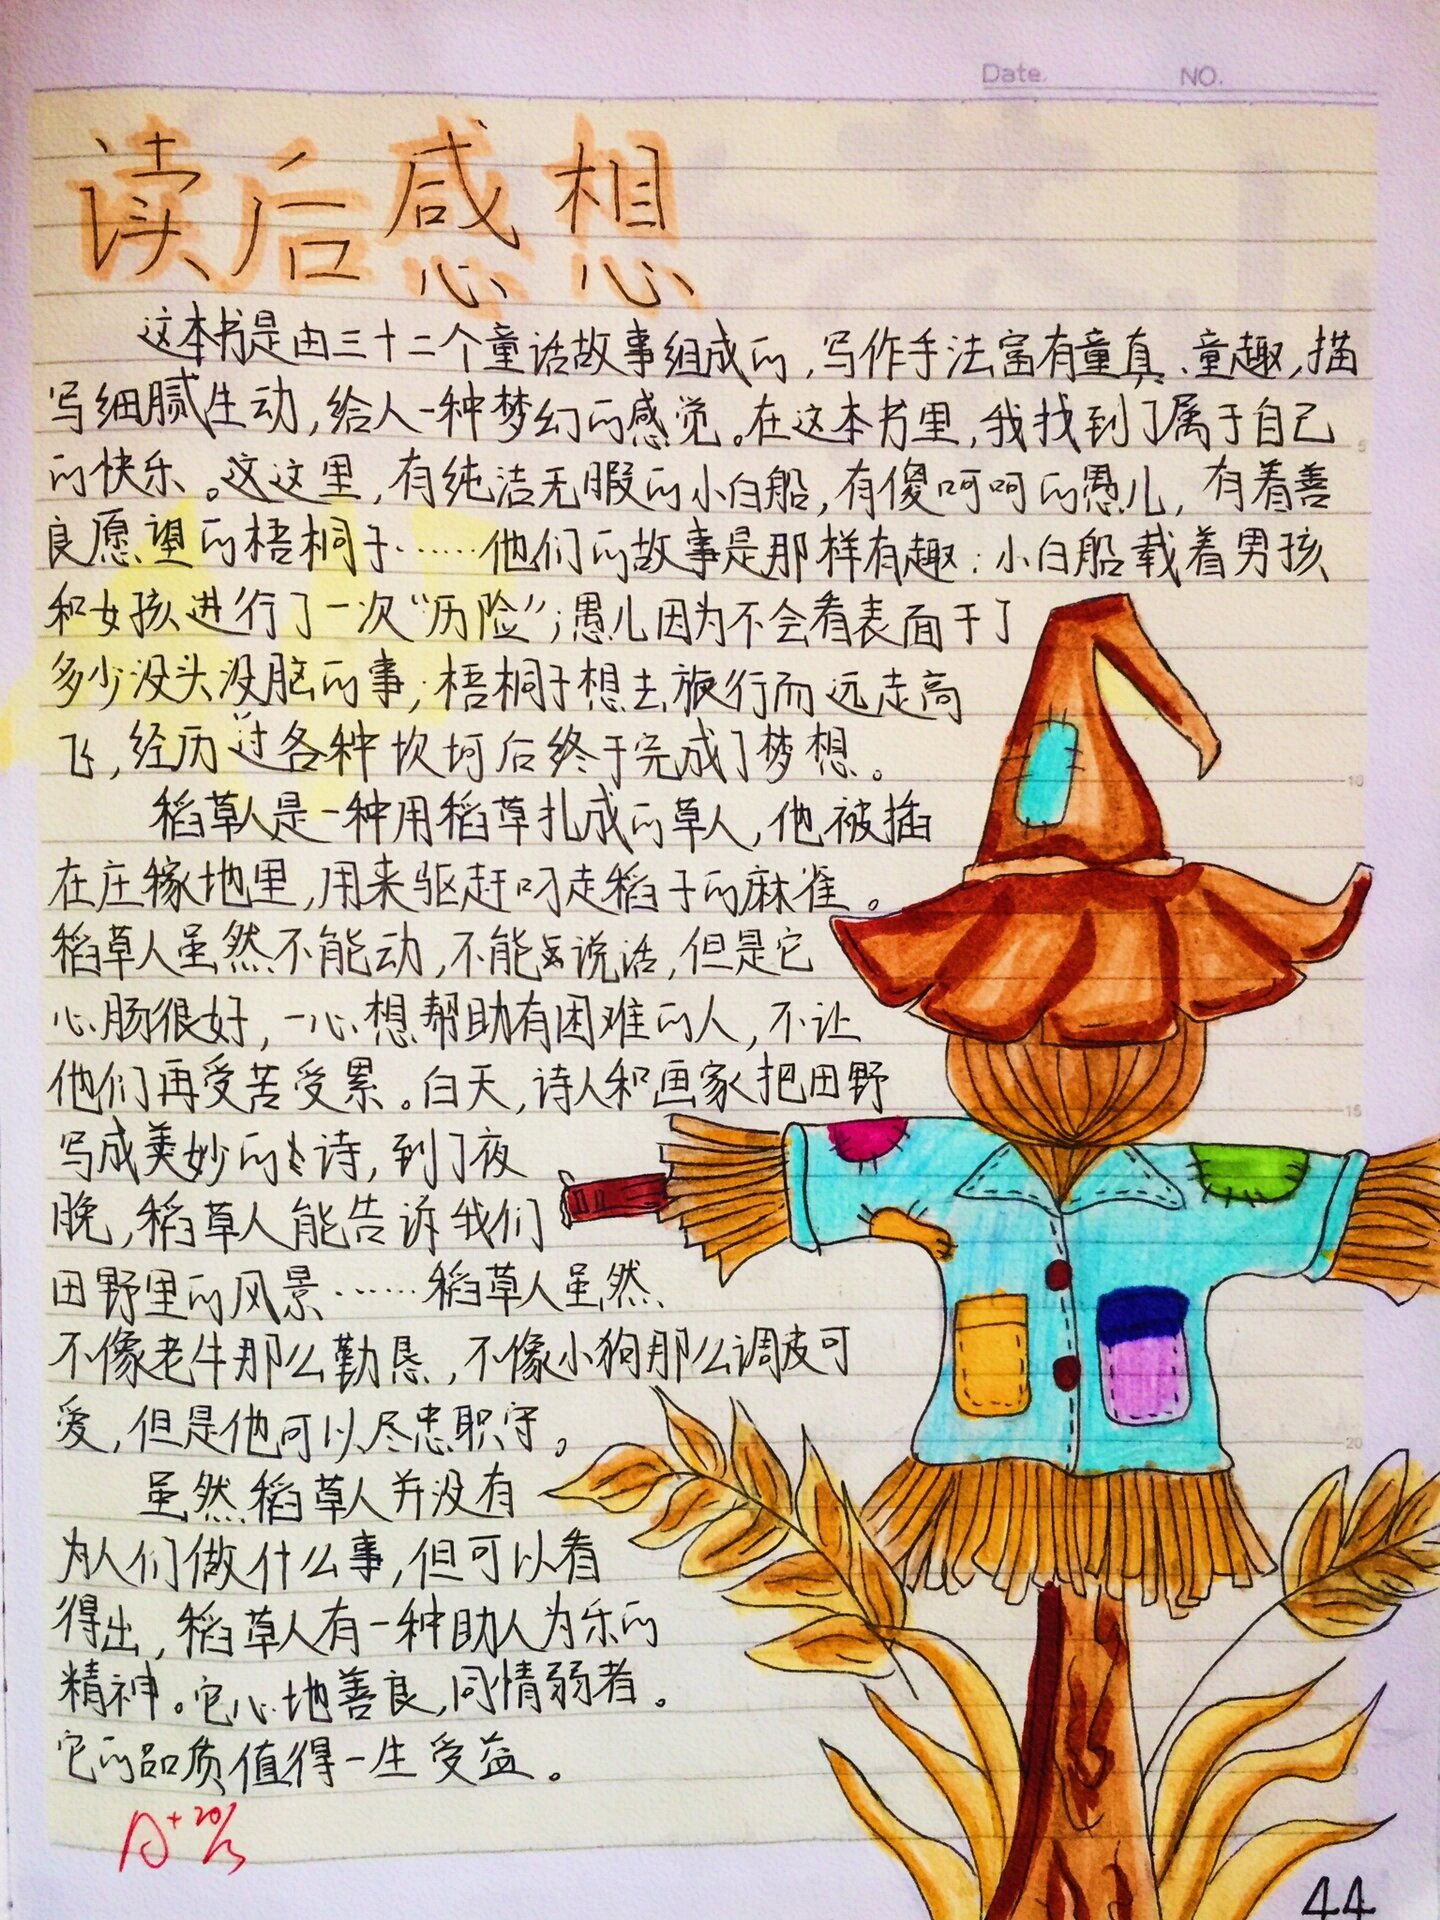 Date.
NO.
读后感想
这本书是由三十二个童话故事组成的,写作手法富有童真、童趣,描
写细腻生动,给人一种梦幻的感觉。在这本书里,我找到了属于自己
的快乐。这这里,有纯洁无暇的小白船,有傻呵呵的愚儿,有着善
良愿望的梧桐子……他们的故事是那样有趣:小白船载着男孩
和女孩进行了一次“历险”;愚儿因为不会看表面干了
多少没头没脑的事;梧桐子想去旅行而远走高
飞,经历过各种坎坷后终于完成了梦想。
稻草人是一种用稻草扎成的草人,他被插
在庄稼地里,用来驱赶叼走稻子的麻雀。
稻草人虽然不能动,不能说话,但是它
心肠很好,一心想帮助有困难的人,不让
他们再受苦受累。白天,诗人和画家把田野
写成美妙的诗,到了夜
晚,稻草人能告诉我们
田野里的风景……稻草人虽然
不像老牛那么勤恳,不像小狗那么调皮可
爱,但是他可以尽忠职守。
虽然稻草人并没有
为人们做什么事,但可以看
得出,稻草人有一种助人为乐的
精神。它心地善良,同情弱者。
它的品质值得一生受益。
A+
44
5
10
15
20